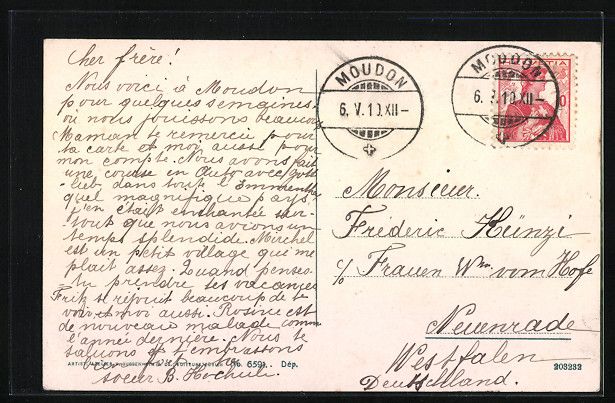 Cher frère!
Nous voici à Moudon
pour quelques semaines
où nous jouissons beaucoup
Maman te remercie pour
ta carte et moi aussi pour
mon compte. Nous avons fait
une course en Auto avec
dans toute l'Emmenthal
quel magnifique pays
j'en étais enchantée sur-
tout que nous avions un
temps splendide. Mirchel
est un petit village qui me
plait assez. Quand penses
tu prendre tes vacances
Fritz se réjouit beaucoup de te
voir et moi aussi. Rosine est
de nouveau malade comme
l'année dernière. Nous te
saluons et t'embrassons
soeur B. Hochuli
MOUDON
6. V. 10. XII -
MOUDON
6. V. 10. XII -
Monsieur.
Frederic Künzi
c/ Frauen Wm vom Hofe
Neuenrade
Westfalen
Deutschland.
6591. Dép.
203232